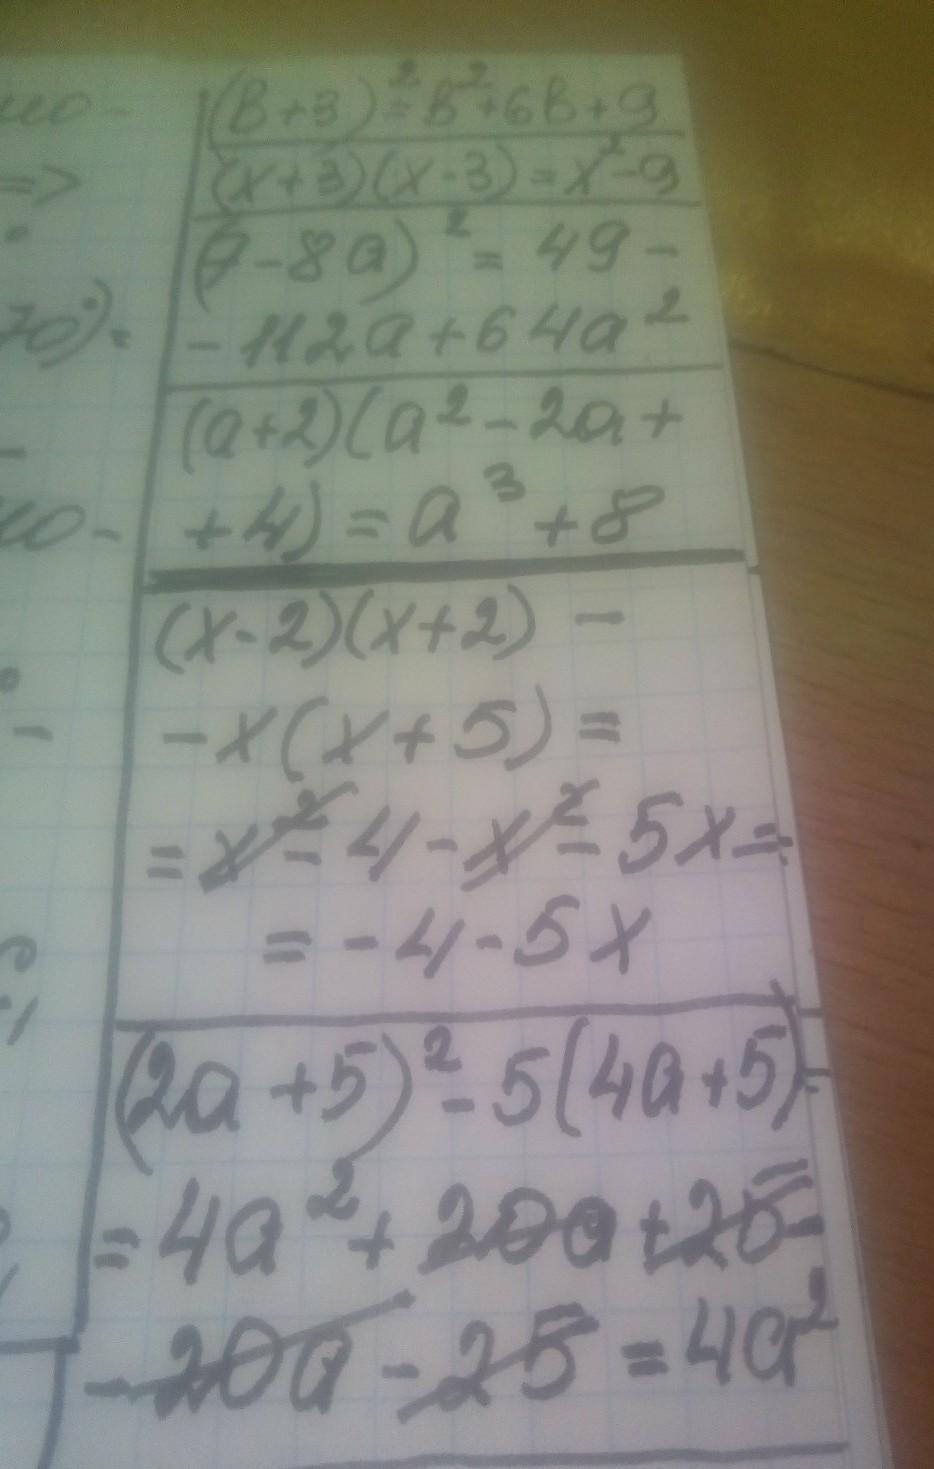 (в+3)²=в²+6в+9
(x+3)(x-3)=x²-9
(7-8a)²=49-
-112a+64a²
(a+2)(a²-2a+
+4)=a³+8
(x-2)(x+2)-
-x(x+5)=
=x²-4-x²-5x=
=-4-5x
(2a+5)²-5(4a+5)=
=4a²+20a+25-
-20a-25=4a²